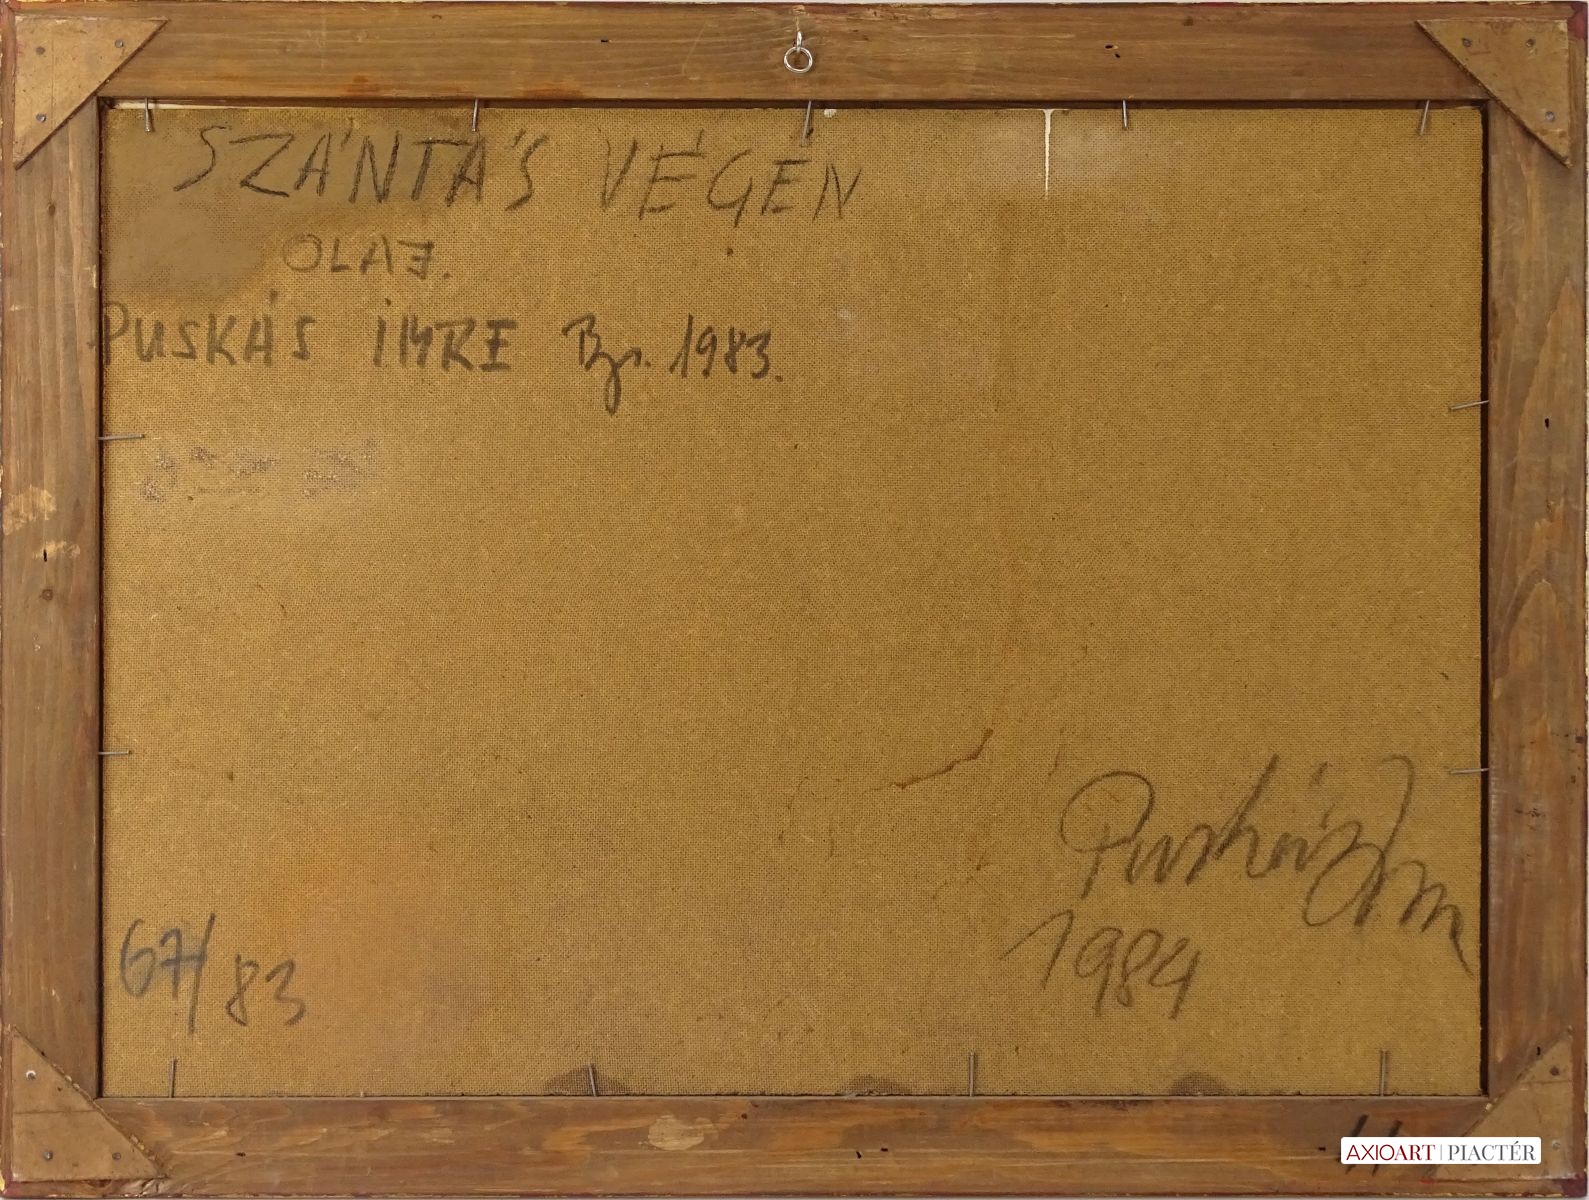 SZÁNTÁS VÉGÉN
OLAJ.
PUSKÁS IMRE Bp. 1983.
Puskás Imre
1984
67/83
AXIOART | PIACTÉR